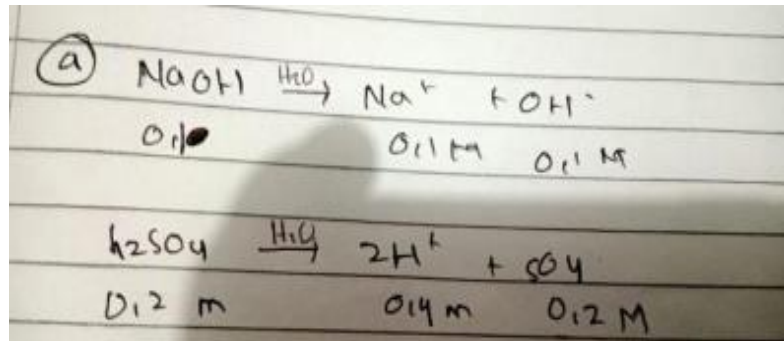 a NaOH H2O → Na+ + OH-
0,1 0,1 M 0,1 M
h2SO4 H2O → 2H+ + SO4
0,2 m 0,4 m 0,2 M